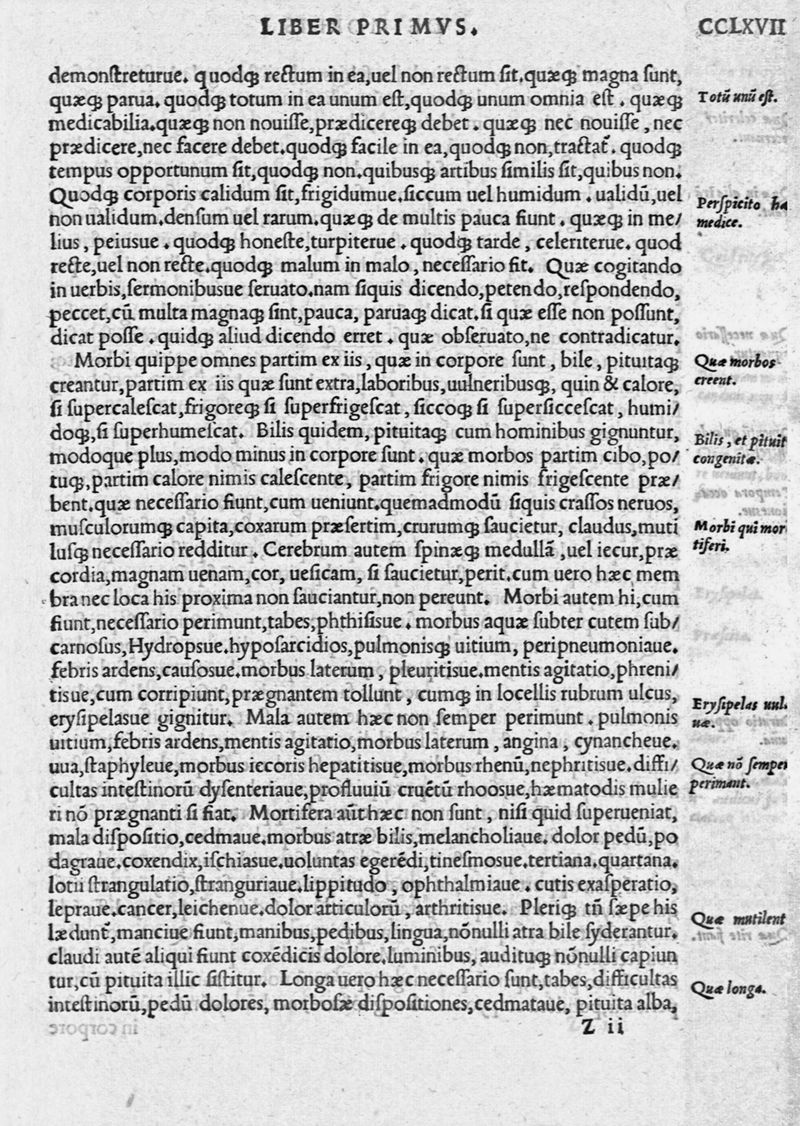 LIBER PRIMVS.
CCLXVII
demonſtreturue. quodq̃ rectum in ea,uel non rectum ſit.quæq̃ magna ſunt,
quæq̃ parua. quodq̃ totum in ea unum eſt,quodq̃ unum omnia eſt . quæq̃
Totũ unũ eſt.
medicabilia.quæq̃ non nouiſſe,prædicereq̃ debet . quæq̃ nec nouiſſe , nec
prædicere,nec facere debet.quodq̃ facile in ea,quodq̃ non,tractat᷑. quodq̃
tempus opportunum ſit,quodq̃ non.quibusq̃ artibus ſimilis ſit,quibus non.
Quodq̃ corporis calidum ſit,frigidumue.ſiccum uel humidum . ualidũ,uel
Perſpicito hæ
non ualidum.denſum uel rarum.quæq̃ de multis pauca fiunt . quæq̃ in me/
medice.
lius , peiusue . quodq̃ honeſte,turpiterue . quodq̃ tarde , celeriterue. quod
recte,uel non recte.quodq̃ malum in malo , neceſſario fit. Quæ cogitando
in uerbis,ſermonibusue ſeruato.nam ſiquis dicendo,petendo,reſpondendo,
peccet,cũ multa magnaq̃ ſint,pauca, paruaq̃ dicat.ſi quæ eſſe non poſſunt,
dicat poſſe . quidq̃ aliud dicendo erret . quæ obſeruato,ne contradicatur.
Morbi quippe omnes partim ex iis , quæ in corpore ſunt , bile , pituitaq̃
Quæ morbos
creantur,partim ex iis quæ ſunt extra,laboribus,uulneribusq̃, quin & calore,
creent.
ſi ſupercaleſcat,frigoreq̃ ſi ſuperfrigeſcat , ſiccoq̃ ſi ſuperſicceſcat , humi/
doq̃,ſi ſuperhumeſcat. Bilis quidem, pituitaq̃ cum hominibus gignuntur,
Bilis , et pituit
modoque plus,modo minus in corpore ſunt . quæ morbos partim cibo,po/
congenitæ.
tuq̃,partim calore nimis caleſcente , partim frigore nimis frigeſcente præ/
bent.quæ neceſſario fiunt,cum ueniunt.quemadmodũ ſiquis craſſos neruos,
muſculorumq̃ capita,coxarum præſertim,crurumq̃ ſaucietur, claudus,muti
Morbi qui mor
luſq̃ neceſſario redditur . Cerebrum autem ſpinæq̃ medullã ,uel iecur,præ
tiferi.
cordia,magnam uenam,cor, ueſicam, ſi ſaucietur,perit.cum uero hæc mem
bra nec loca his proxima non ſauciantur,non pereunt. Morbi autem hi,cum
fiunt,neceſſario perimunt,tabes,phthiſisue . morbus aquæ ſubter cutem ſub/
carnoſus,Hydropsue.hypoſarcidios,pulmonisq̃ uitium, peripneumoniaue.
febris ardens,cauſosue.morbus laterum , pleuritisue.mentis agitatio,phreni/
tisue,cum corripiunt,prægnantem tollunt , cumq̃ in locellis rubrum ulcus,
Eryſipelas uul
eryſipelasue gignitur. Mala autem hæc non ſemper perimunt . pulmonis
uæ.
uitium,febris ardens,mentis agitatio,morbus laterum , angina , cynancheue.
uua,ſtaphyleue,morbus iecoris hepatitisue,morbus rhenũ,nephritisue.diffi/
Quæ nõ ſemper
cultas inteſtinorũ dyſenteriaue,profluuiũ cruẽtũ rhoosue,hæmatodis mulie
perimant.
ri nõ prægnanti ſi fiat. Mortifera aũt hæc non ſunt , niſi quid ſuperueniat,
mala diſpoſitio,cedmaue.morbus atræ bilis,melancholiaue. dolor pedũ,po
dagraue.coxendix,iſchiasue.uoluntas egerẽdi,tineſmosue.tertiana.quartana.
lotii ſtrangulatio,ſtranguriaue.lippitudo , ophthalmiaue . cutis exaſperatio,
lepraue.cancer,leichenue.dolor articulorũ , arthritisue. Pleriq̃ tñ ſæpe his
Quæ mutilent
lædunt᷑,manciue fiunt,manibus,pedibus,lingua,nõnulli atra bile ſyderantur.
claudi autẽ aliqui fiunt coxẽdicis dolore,luminibus, audituq̃ nõnulli capiun
tur,cũ pituita illic ſiſtitur. Longa uero hæc neceſſario ſunt,tabes,difficultas
Quæ longa.
inteſtinorũ,pedũ dolores, morboſæ diſpoſitiones,cedmataue, pituita alba,
Z ii